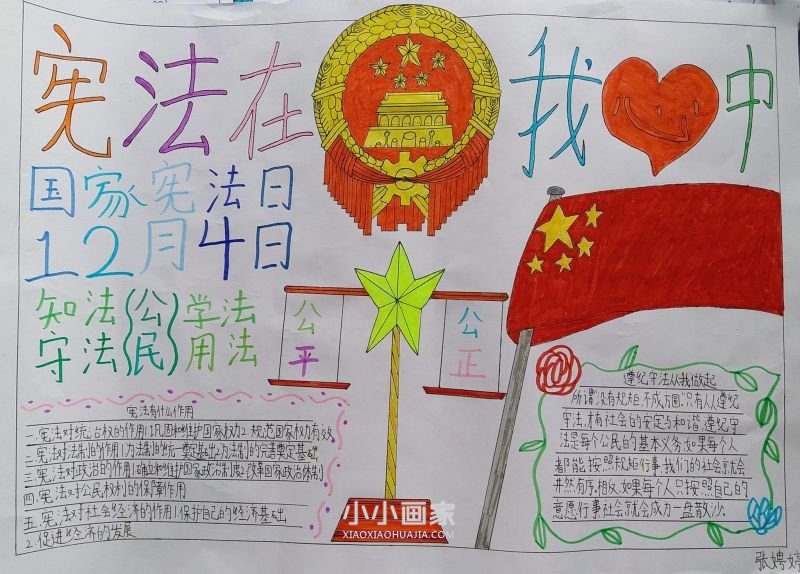 宪法在我中
国家宪法日
12月4日
知法 公 学法
守法 民 用法
公平
公正
宪法有什么作用
一.宪法对统治权的作用:1.巩固和维护国家权力2.规范国家权力有效
二.宪法对法制的作用1.为法制的统一奠定基础2.为法制的完善奠定基础
三.宪法对政治的作用1.确立和维护国家政治制度2.改革国家政治体制
四.宪法对公民权利的保障作用
五.宪法对社会经济的作用1.保护自己的经济基础
2.促进经济的发展
遵纪守法从我做起
所谓"没有规矩,不成方圆"只有人人遵纪
守法,才有社会的安定与和谐,遵纪守
法是每个公民的基本义务,如果每个人
都能按照规矩行事,我们的社会就会
井然有序,相反,如果每个人只按照自己的
意愿行事社会就会成为一盘散沙.
小小画家
XIAOXIAOHUAJIA.COM
张娉婷